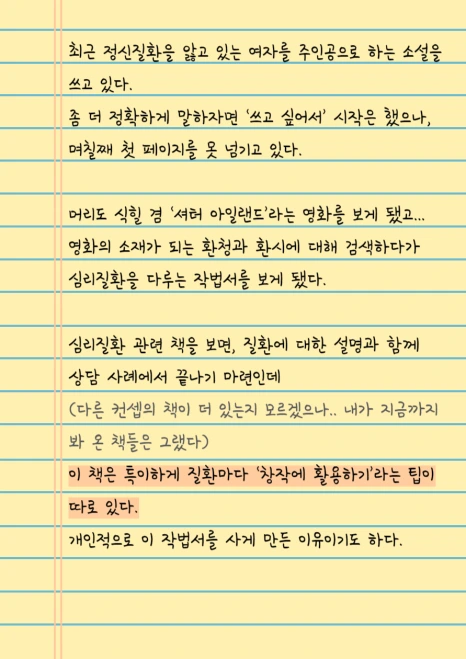 최근 정신질환을 앓고 있는 여자를 주인공으로 하는 소설을
쓰고 있다.
좀 더 정확하게 말하자면 '쓰고 싶어서' 시작은 했으나,
며칠째 첫 페이지를 못 넘기고 있다.
머리도 식힐 겸 '셔터 아일랜드'라는 영화를 보게 됐고...
영화의 소재가 되는 환청과 환시에 대해 검색하다가
심리질환을 다루는 작법서를 보게 됐다.
심리질환 관련 책을 보면, 질환에 대한 설명과 함께
상담 사례에서 끝나기 마련인데
(다른 컨셉의 책이 더 있는지 모르겠으나.. 내가 지금까지
봐 온 책들은 그랬다)
이 책은 특이하게 질환마다 '창작에 활용하기'라는 팁이
따로 있다.
개인적으로 이 작법서를 사게 만든 이유이기도 하다.